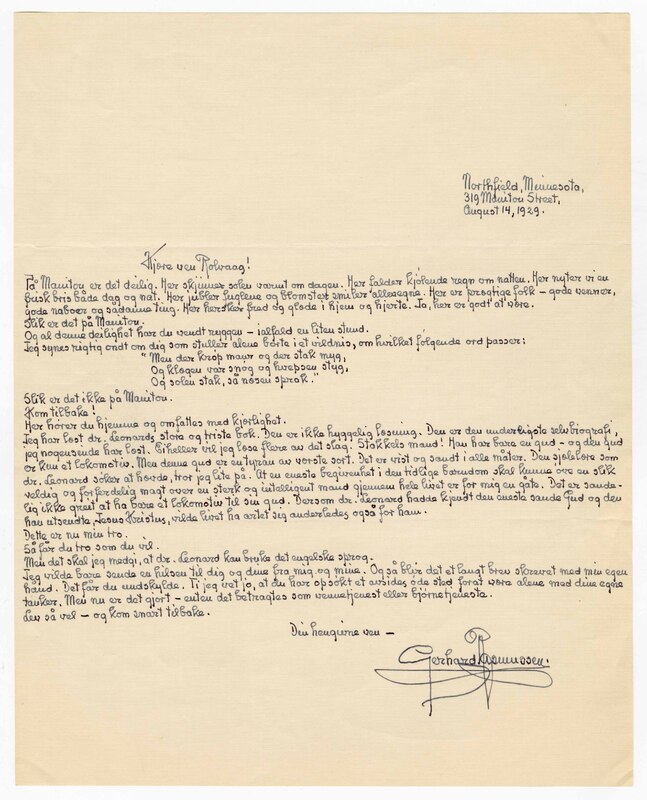 Northfield, Minnesota,
319 Manitou Street,
August 14, 1929.
Kjære ven Rolvaag!
På Manitou er det deilig. Her skjinner solen varmt om dagen. Her falder kjølende regn om natten. Her nyter vi en
frisk bris både dag og nat. Her jubler fuglene og blomster smiler allesegne. Her er prægtige folk – gode venner,
gode naboer og sådanne ting. Her hersker fred og glæde i hjem og hjerte. Ja, her er godt at være.
Slik er det på Manitou.
Og al denne deilighet har du vendt ryggen – ialfald en liten stund.
Jeg synes rigtig ondt om dig som stuller alene borte i et vildnis, om hvilket følgende ord passer:
"Men der krøp maur og der stak myg,
Og kløgen var snog og hvepsen styg,
Og solen stak, så nosen sprak."
Slik er det ikke på Manitou.
Kom tilbake!
Her hører du hjemme og omfattes med kjærlighet.
Jeg har læst dr. Leonards store og triste bok. Den er ikke hyggelig læsning. Den er den underligste selvbiografi,
jeg nogensinde har læst. Ei heller vil jeg læse flere av det slag. Stakkels mand! Han har bare en gud – og den gud
er kun et lokomotiv. Men denne gud er en tyran av værste sort. Det er vist og sandt i alle måter. Den sjælelære som
dr. Leonard søker at hævde, tror jeg lite på. At en eneste begivenhet i den tidlige barndom skal kunne øve en slik
veldig og forferdelig magt over en sterk og intelligent mand gjennem hele livet er for mig en gåte. Det er sande-
lig ikke greit at ha bare et lokomotiv til sin gud. Dersom dr. Leonard hadde kjendt den eneste sande Gud og den
han utsendte, Jesus Kristus, vilde livet ha artet sig anderledes også for ham.
Dette er nu min tro.
Så får du tro som du vil.
Men det skal jeg medgi, at dr. Leonard kan bruke det engelske sprog.
Jeg vilde bare sende en hilsen til dig og dine fra mig og mine. Og så blir det et langt brev skrevet med min egen
hånd. Det får du undskylde. Ti jeg vet jo, at du har opsøkt et avsides, øde sted forat være alene med dine egne
tanker. Men nu er det gjort – enten det betragtes som vennetjenest eller bjørnetjeneste.
Lev så vel – og kom snart tilbake.
Din hengivne ven –
Gerhard Rasmussen.